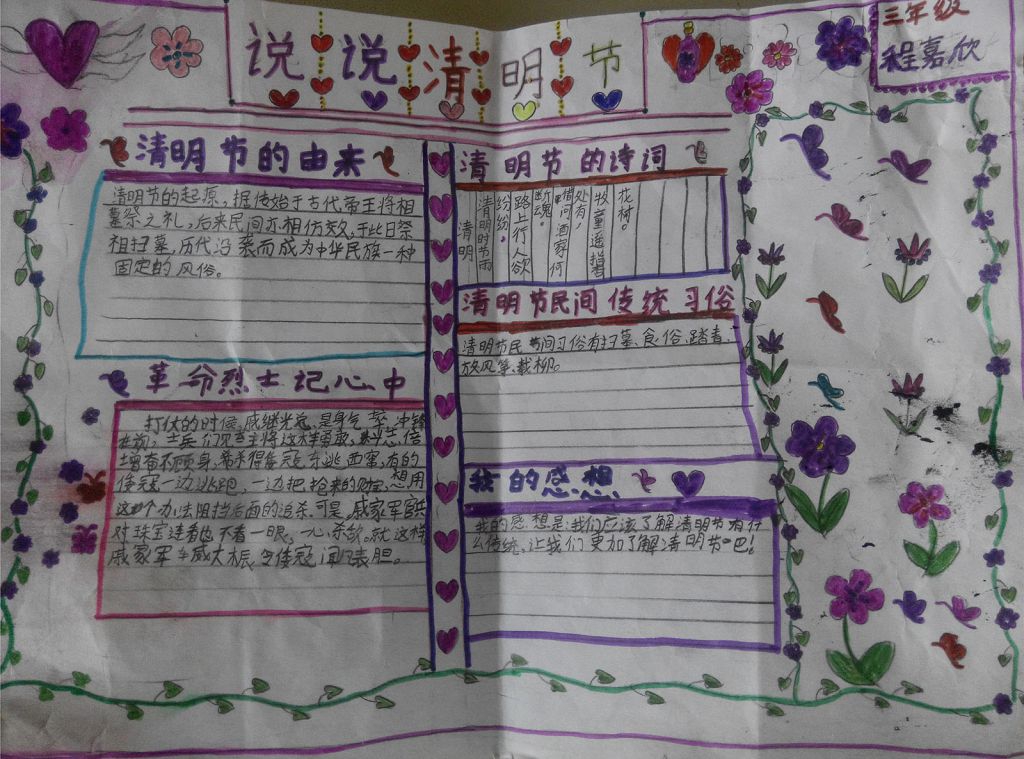 说说清明节
三年级
程嘉欣
清明节的由来
清明节的起源,据传始于古代帝王将相
墓祭之礼,后来民间亦相仿效,于此日祭
祖扫墓,历代沿袭而成为中华民族一种
固定的风俗。
革命烈士记心中
打仗的时候,戚继光总是身先士卒,冲锋
在前,士兵们见主将这木羊勇敢,
增奋不顾身,杀得倭寇东逃西窜,有的
倭寇一边逃跑,一边把抢来的财宝,想用
这个办法阻挡后面的追杀,可是,戚家军官兵
对珠宝连看也不看一眼,
戚家军
清明节的诗词
清明
清明时节雨
纷纷,
路上行人欲
断魂。
借问酒家何
处有,
牧童遥指
花树。
清明节民间传统习俗
清明节民间习俗有扫墓、食俗、踏青、
放风筝、栽柳。
我的感想
我的感想是:我们应该了解清明节有什
么传统,让我们更加了解清明节吧!